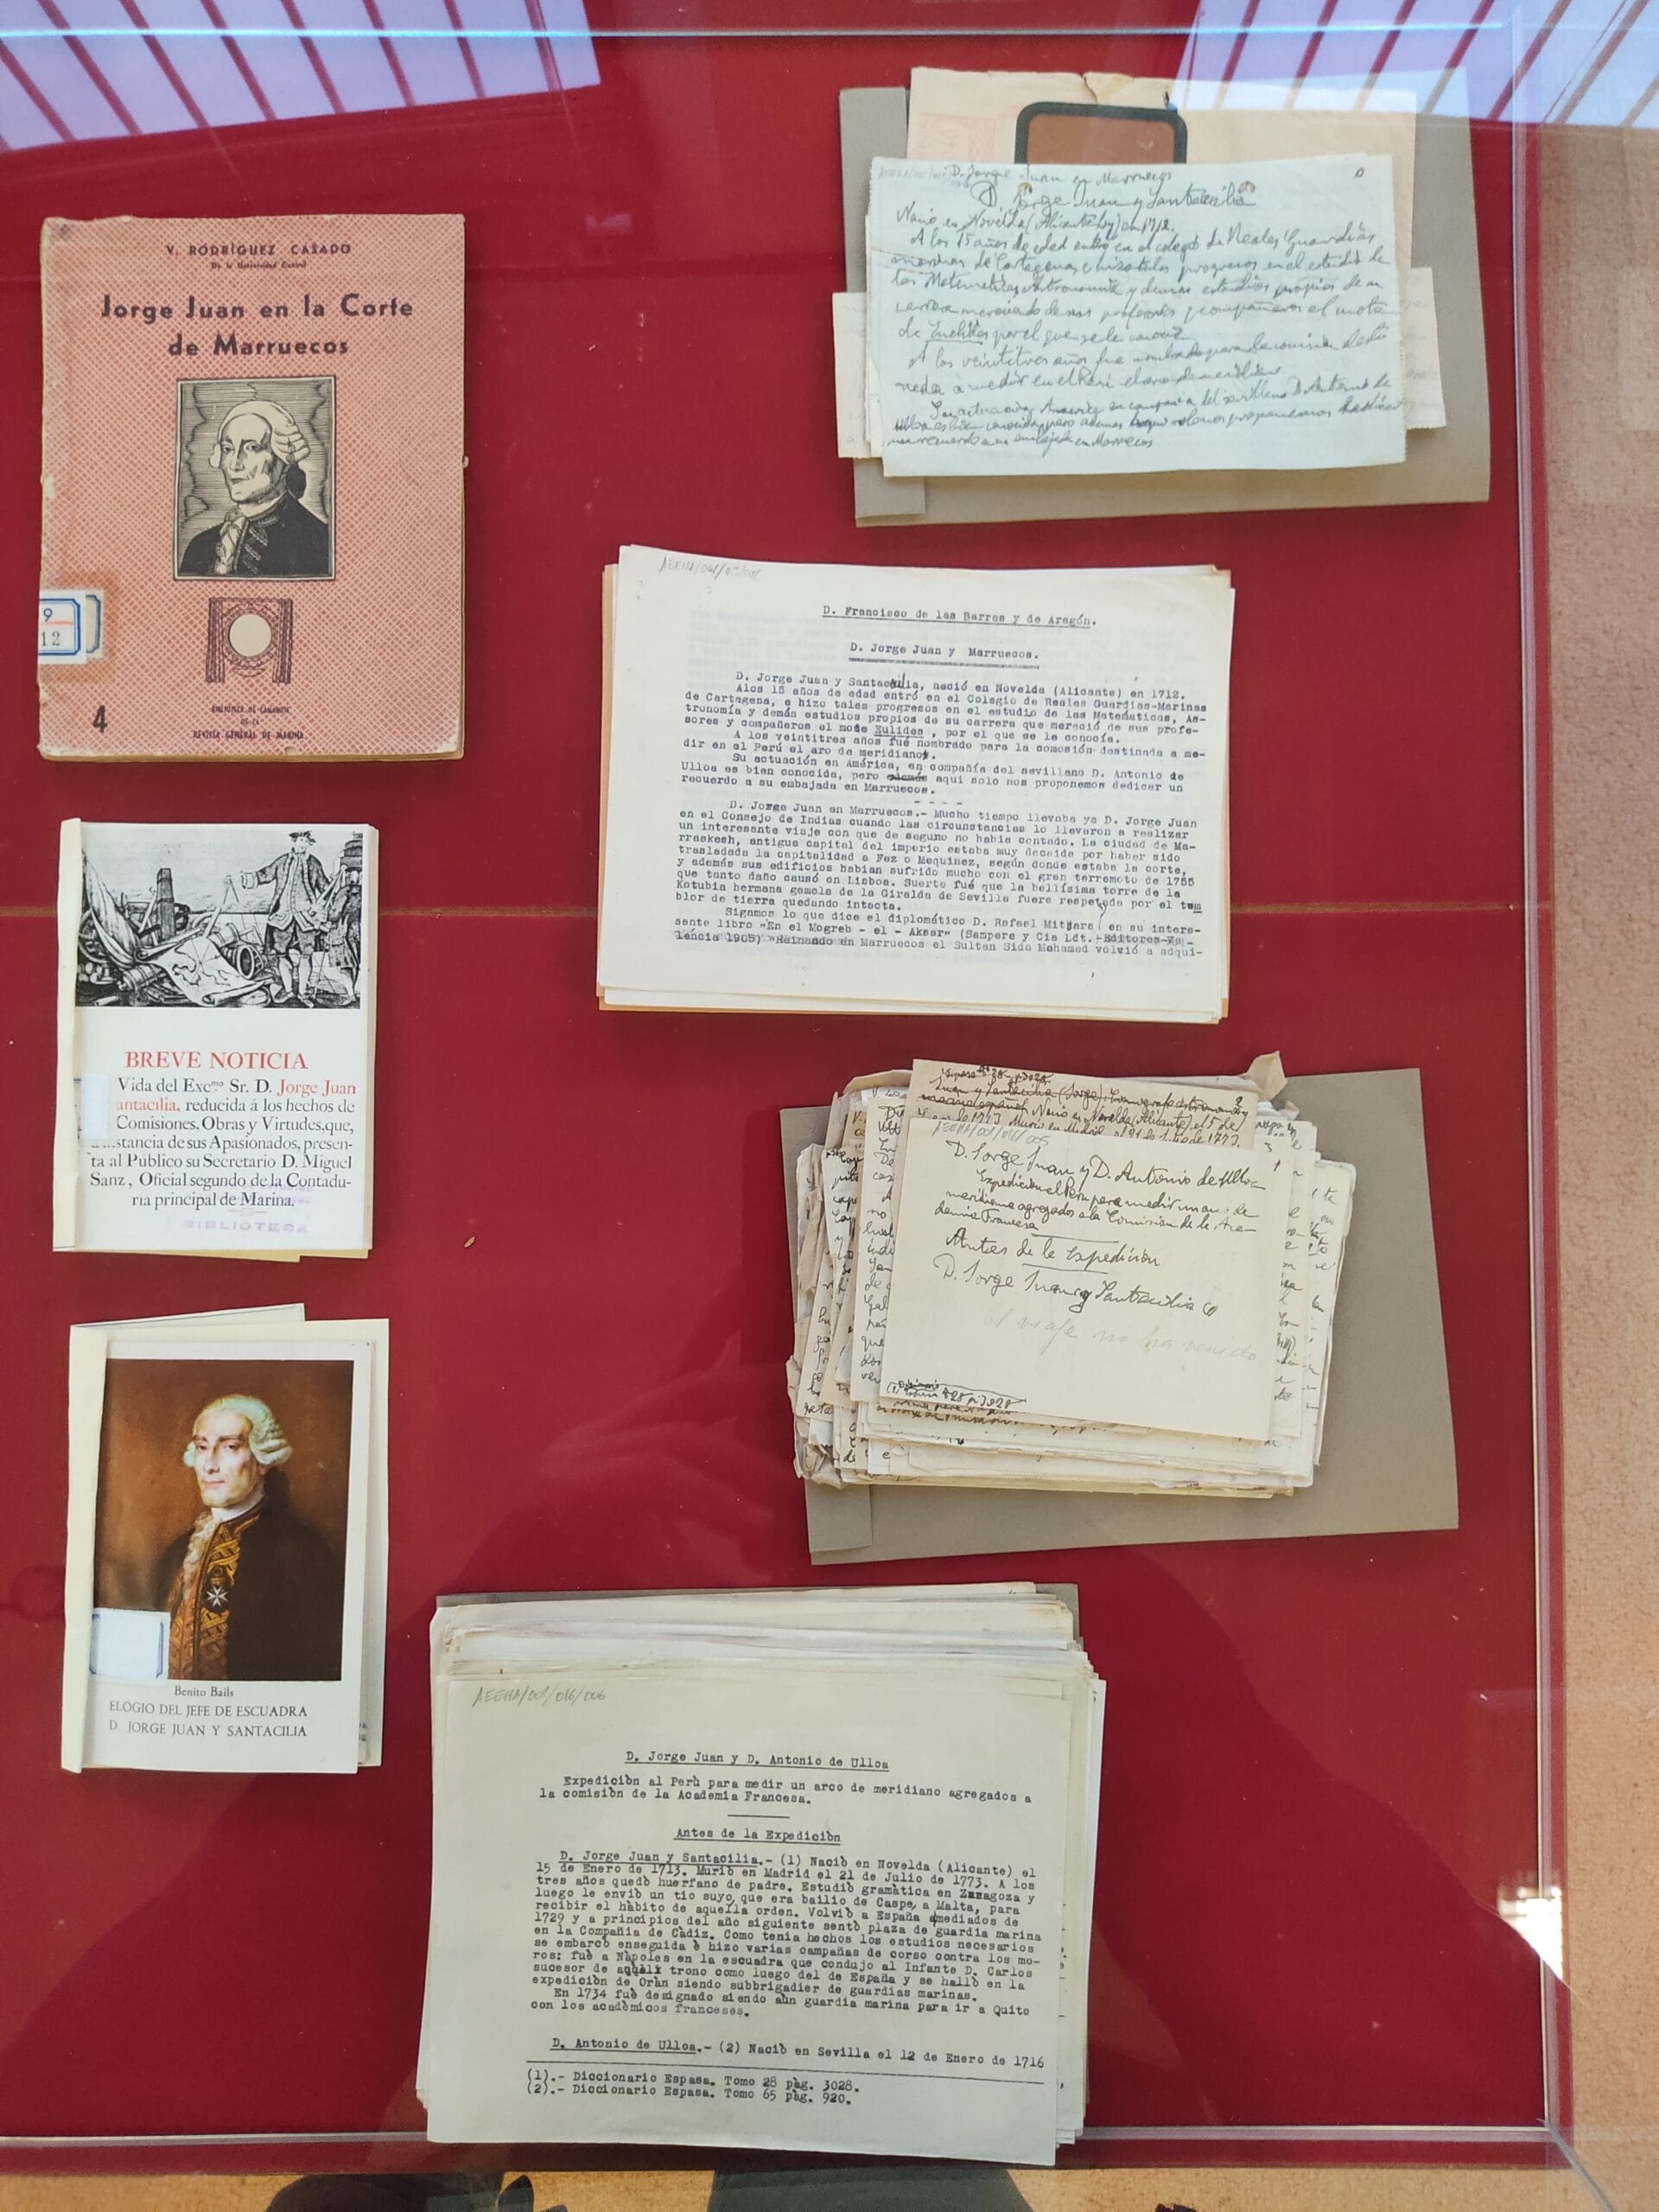 V. RODRÍGUEZ CASADO
De la Universidad Central
Jorge Juan en la Corte
de Marruecos
9
12
4
BIBLIOTECA DE CAMAROTE
DE LA
REVISTA GENERAL DE MARINA
BREVE NOTICIA
Vida del Excmo Sr. D. Jorge Juan
antacilia, reducida á los hechos de
Comisiones, Obras y Virtudes, que,
instancia de sus Apasionados, presen-
ta al Público su Secretario D. Miguel
Sanz, Oficial segundo de la Contadu-
ria principal de Marina.
BIBLIOTECA
Benito Bails
ELOGIO DEL JEFE DE ESCUADRA
D. JORGE JUAN Y SANTACILIA
D. Jorge Juan en Marruecos
D. Jorge Juan y Santacilia
Nació en Novelda (Alicante hoy) en 1712.
A los 15 años de edad entró en el colegio de Reales Guardias
marinas de Cartagena, e hizo tales progresos en el estudio de
las Matematicas, Astronomia y demas estudios propios de su
carrera mereciendo de sus profesores y compañeros el mote
de Euclides por el que se le conocia
A los veintitres años fue nombrado para la comision desti
nada a medir en el Perú el arco de meridiano.
Su actuacion America en compañia del sevillano D. Antonio de
Ulloa es bien conocida, pero ademas aqui solo nos proponemos dedicar
un recuerdo a su embajada en Marruecos.
D. Francisco de las Barras y de Aragón.
D. Jorge Juan y Marruecos.
D. Jorge Juan y Santacilia, nació en Novelda (Alicante) en 1712.
Alos 15 años de edad entró en el Colegio de Reales Guardias-Marinas
de Cartagena, e hizo tales progresos en el estudio de las Matemáticas, As-
tronomía y demás estudios propios de su carrera que mereció de sus profe-
sores y compañeros el mote Eulides , por el que se le conocía.
A los veintitres años fué nombrado para la comosión destinada a me-
dir en el Perú el aro de meridiano.
Su actuación en América, en compañía del sevillano D. Antonio de
Ulloa es bien conocida, pero además aqui solo nos proponemos dedicar un
recuerdo a su embajada en Marruecos.
- - - -
D. Jorge Juan en Marruecos.- Mucho tiempo llevaba ya D. Jorge Juan
en el Consejo de Indias cuando las circunstancias lo llevaron a realizar
un interesante viaje con que de seguro no había contado. La ciudad de Ma-
rraskesh, antigua capital del imperio estaba muy decaida por haber sido
trasladada la capitalidad a Fez o Mequinez, según donde estaba la corte,
y además sus edificios habían sufrido mucho con el gran terremoto de 1755
que tanto daño causó en Lisboa. Suerte fué que la bellísima torre de la
Kotubia hermana gemela de la Giralda de Sevilla fuera respetada por el tem
blor de tierra quedando intacta.
Sigamos lo que dice el diplomático D. Rafael Mitjara en su intere-
sante libro "En el Mogreb - el - Aksar" (Sampere y Cia Ldt. -Editores-Va-
lencia 1905) "Reinando en Marruecos el Sultan Sido Mohamed volvió a adqui-
Juan y Santacilia (Jorge)
marino español. Nació en Novelda (Alicante) el 5 de
Enero de 1713 Murió en Madrid el 21 de Julio de 1773.
AEEHA/001/016/005
D. Jorge Juan y D. Antonio de Ulloa
Expedicion al Peru para medir un arco de
meridiano agregados a la Comision de la Aca-
demia Francesa
Antes de la Expedición
D. Jorge Juan y Santacilia
el viaje no ha venido
AEEHA/001/016/006
D. Jorge Juan y D. Antonio de Ulloa
Expediciòn al Perù para medir un arco de meridiano agregados a
la comisiòn de la Academia Francesa.
Antes de la Expediciòn
D. Jorge Juan y Santacilia.- (1) Naciò en Novelda (Alicante) el
15 de Enero de 1713. Muriò en Madrid el 21 de Julio de 1773. A los
tres años quedò huerfano de padre. Estudiò gramàtica en Zaragoza y
luego le enviò un tio suyo, que era bailio de Caspe, a Malta, para
recibir el hàbito de aquella orden. Volviò a España a mediados de
1729 y a principios del año siguiente sentò plaza de guardia marina
en la Compañia de Càdiz. Como tenia hechos los estudios necesarios
se embarcò enseguida è hizo varias campañas de corso contra los mo-
ros; fuè a Nàpoles en la escuadra que condujo al Infante D. Carlos
sucesor de aquel trono como luego del de España y se hallò en la
expediciòn de Oràn siendo subbrigadier de guardias marinas.
En 1734 fuè designado siendo aùn guardia marina para ir a Quito
con los acadèmicos franceses.
D. Antonio de Ulloa.- (2) Naciò en Sevilla el 12 de Enero de 1716
(1).- Diccionario Espasa. Tomo 28 pàg. 3028.
(2).- Diccionario Espasa. Tomo 65 pàg. 920.